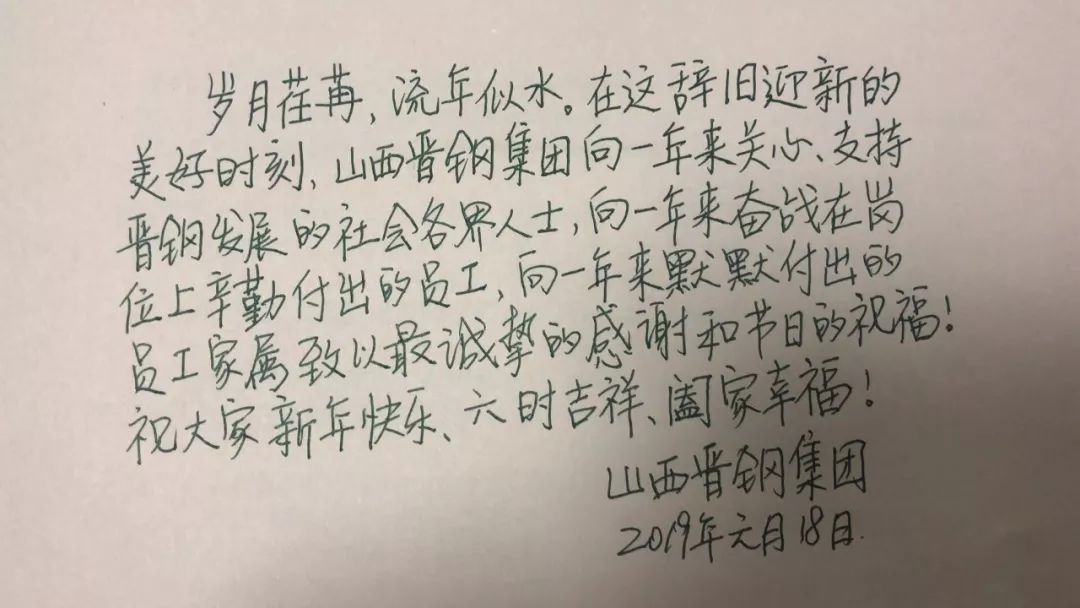 岁月荏苒,流年似水。在这辞旧迎新的
美好时刻、山西晋钢集团向一年来关心、支持
晋钢发展的社会各界人士,向一年来奋战在岗
位上辛勤付出的员工,向一年来默默付出的
员工家属致以最诚挚的感谢和节日的祝福!
祝大家新年快乐、六时吉祥、阖家幸福!
山西晋钢集团
2019年元月18日.